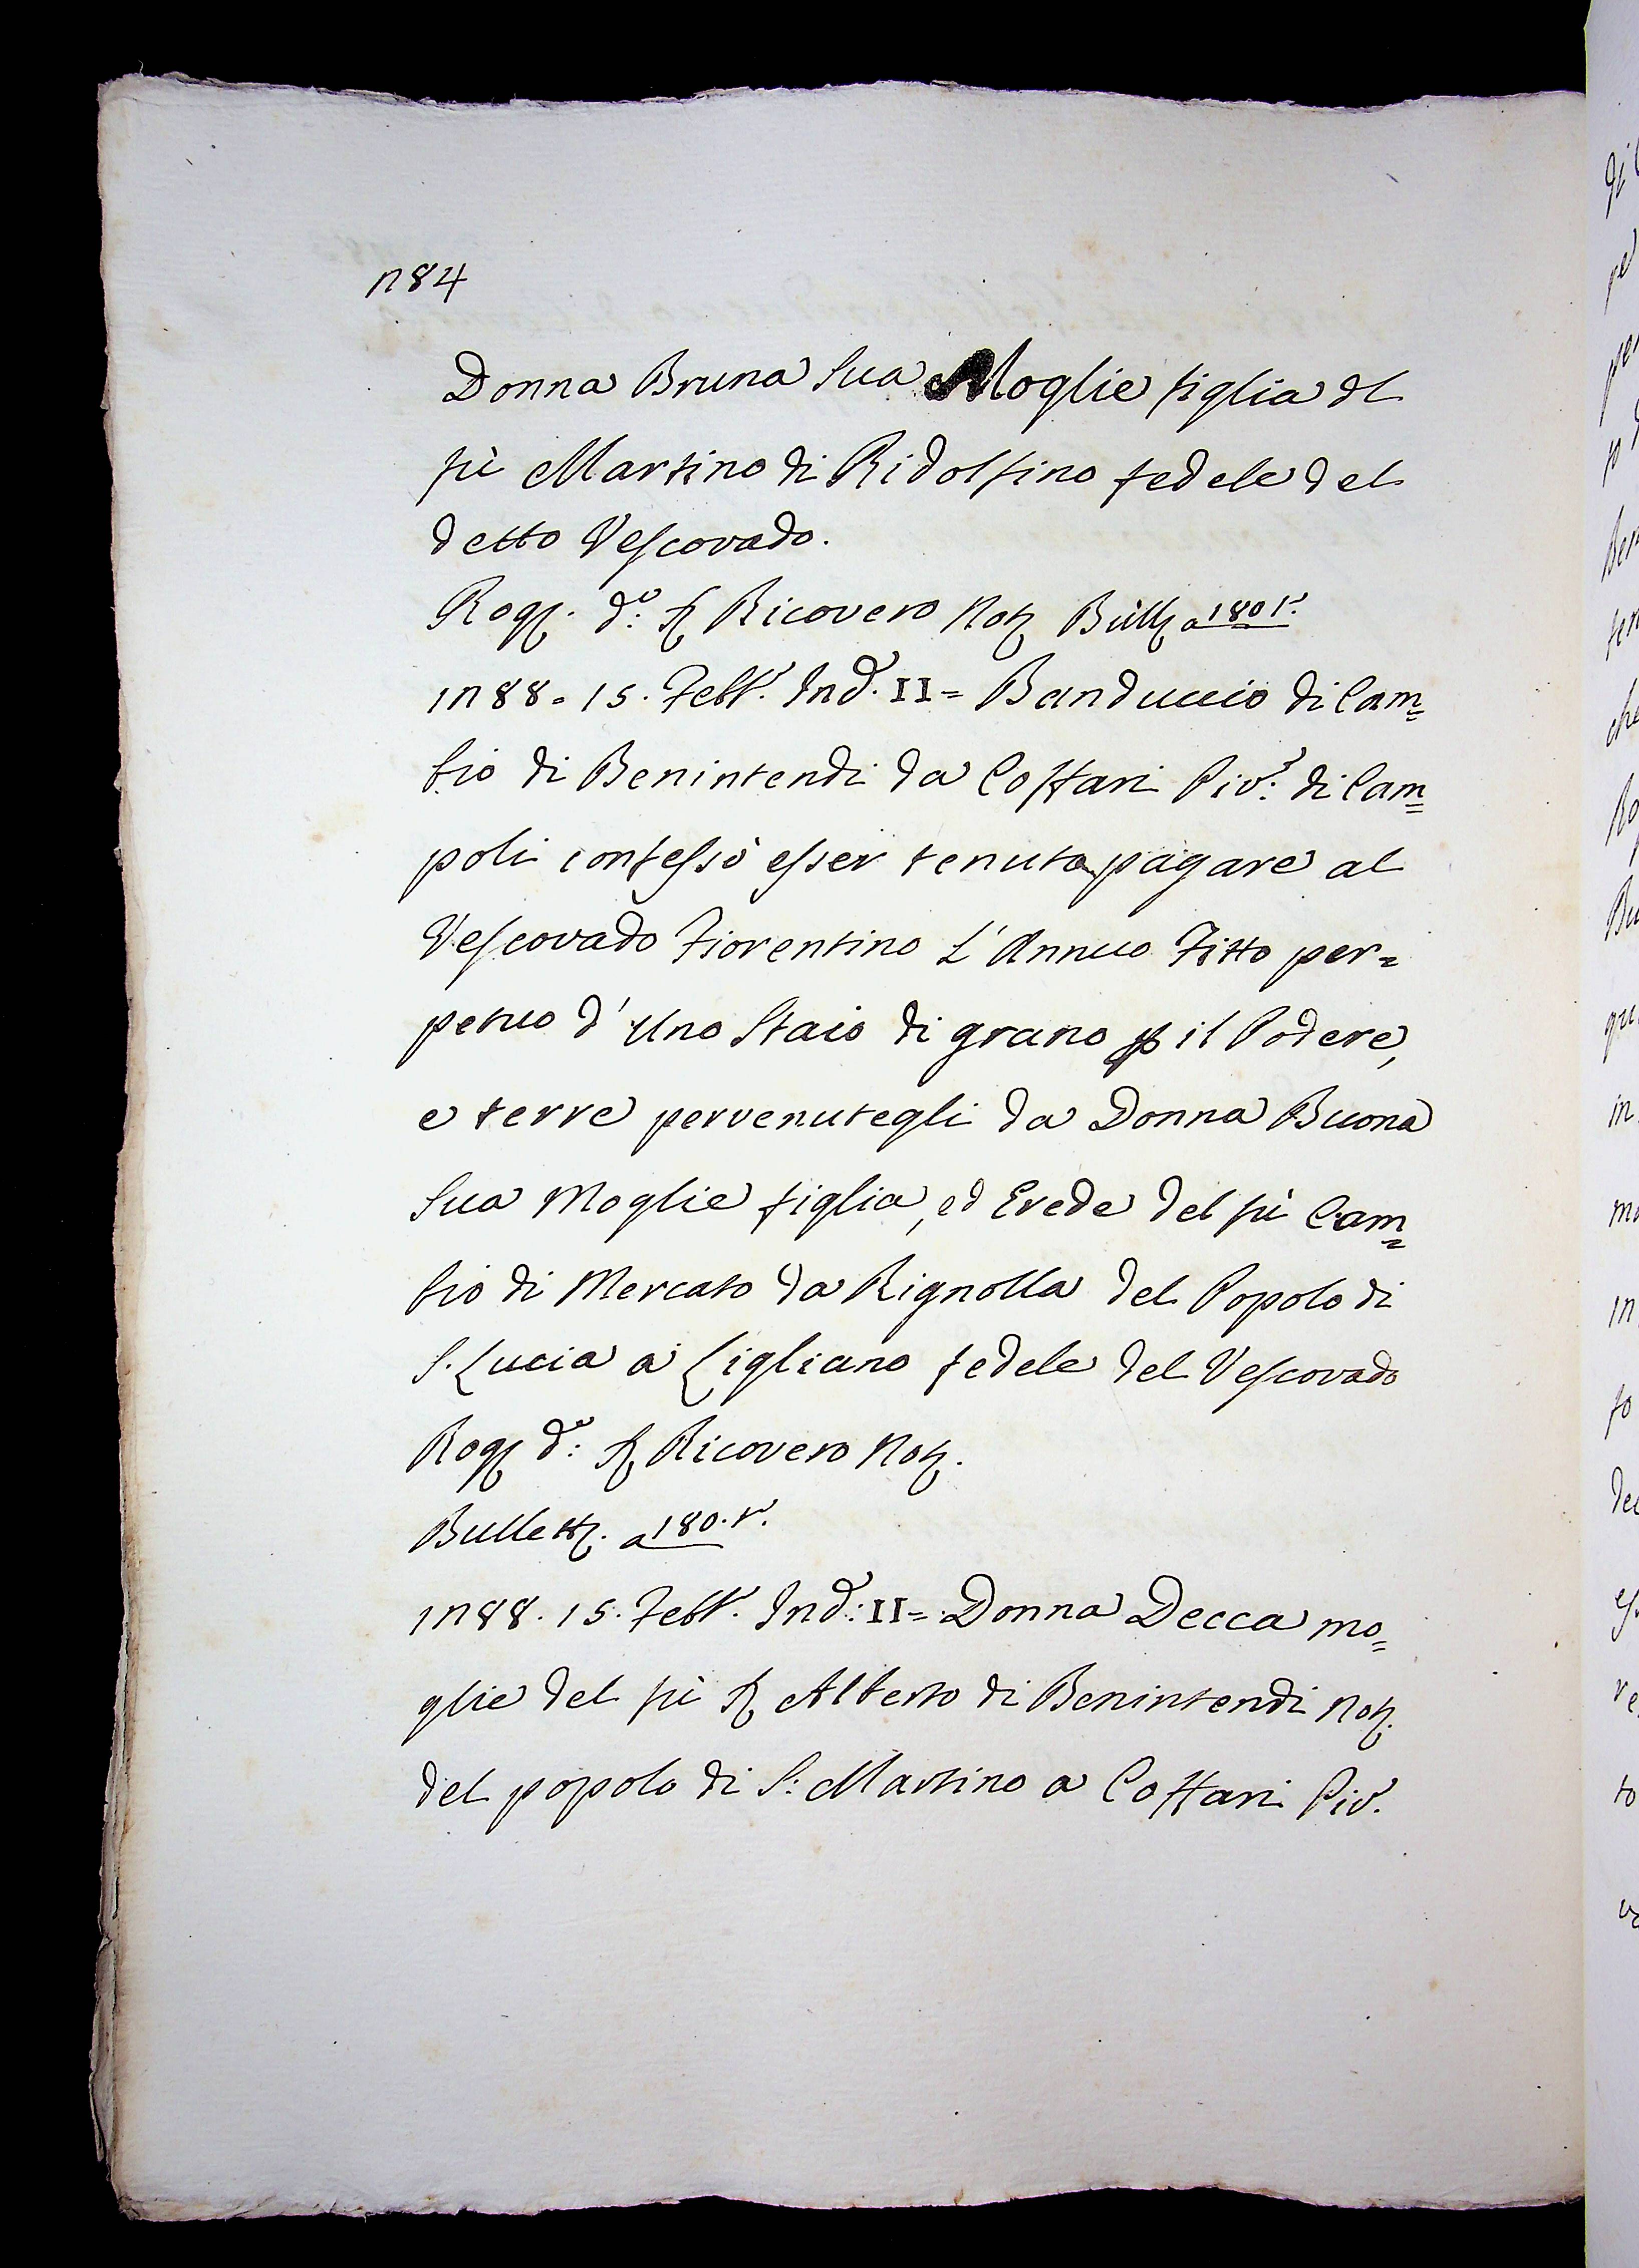 284
Donna Bruna Sua Moglie figlia dl
fù Martino di Ridolfino fedele del
detto Vescovado.
Rog. d.º S. Ricovero Not. Bull. a 180 t.
1288. 15. Febb. Ind. II= Banduccio di Cam=
bio di Benintendi da Coffari Piv.e di Cam=
poli confessò esser tenuto pagare al
Vescovado Fiorentino L'Annuo Fitto per=
petuo d'Uno Staio di grano p il Podere,
e terre pervenutegli da Donna Buona
Sua Moglie figlia, ed Erede del fù Cam=
bio di Mercato da Rignolla del Popolo di
S. Lucia a Ligliano fedele del Vescovado
Rog. d.º S. Ricovero Not.
Bullett. a 180. t.
1288. 15. Febb. Ind: II= Donna Decca mo=
glie del fù S. Alberto di Benintendi Not.
del popolo di S: Martino a Coffari Piv.